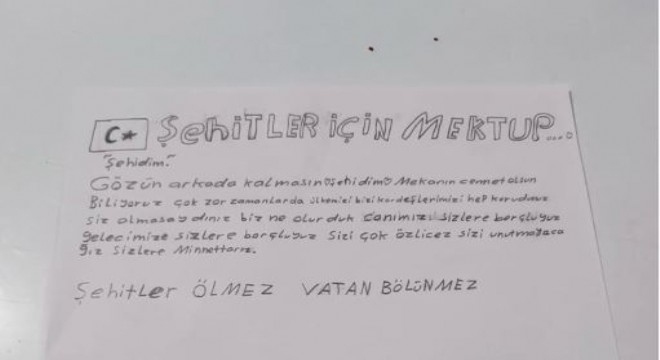 C★ ŞehiTLER içİN MEKTUP....
"Şehidim."
Gözün arkada kalmasın şehidim Mekanın cennet olsun
Biliyoruz çok zor zamanlarda ülkemizi bizi kardeşlerimizi hep korudunuz
siz olmasaydınız biz ne olurduk canımızı sizlere borçluyuz
gelecimize sizlere borçluyuz sizi çok özlicez sizi unutmayaca
ğız sizlere Minnettarız.
Şehitler ÖLMEZ VATAN BÖLÜNMEZ